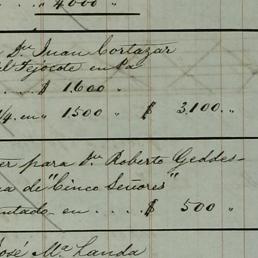 . . . „ 4000 „
Dn. Juan Cortazar
el Tejocote en Pa
. . $ 1.600 „
1/4. en „ 1.500 „ $ 3,100. „
er para Dn. Roberto Geddes
a de "Cinco Señores"
ntado en . . . . $ 500 „
José Ma. Landa